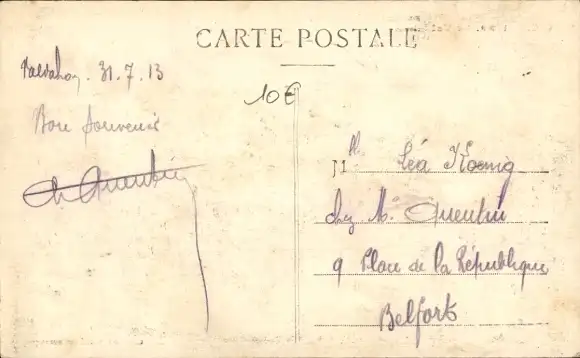 CARTE POSTALE
Valdahon. 31.7.13
10€
Bon souvenir
Ch Quentin
Mlle Léa Koenig
chez M. Quentin
9 Place de la République
Belfort